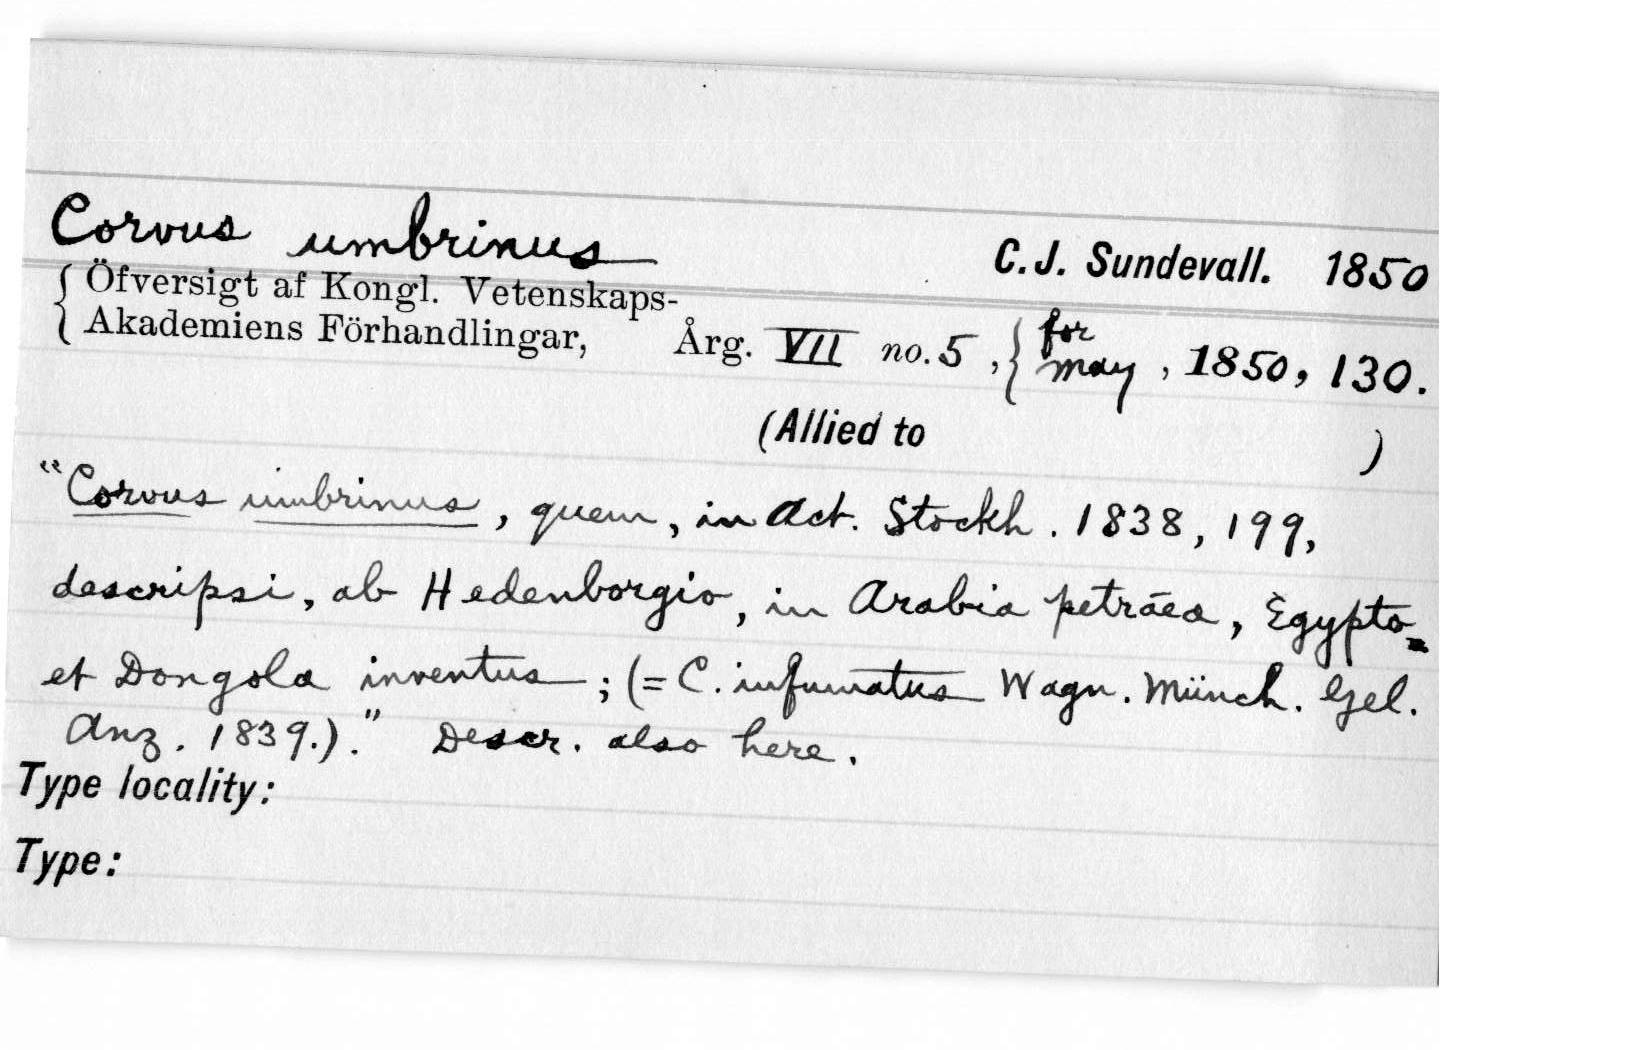 Corvus umbrinus C. J. Sundevall. 1850
{ Öfversigt af Kongl. Vetenskaps-
Akademiens Förhandlingar, Årg. VII no. 5, { for may, 1850, 130.
(Allied to )
"Corvus umbrinus, quem, in Act. Stockh. 1838, 199,
descripsi, ab Hedenborgio, in Arabia petræa, Egypto
et Dongola inventus; (= C. infumatus Wagn. Münch. Gel.
Anz. 1839.)." Descr. also here.
Type locality:
Type: